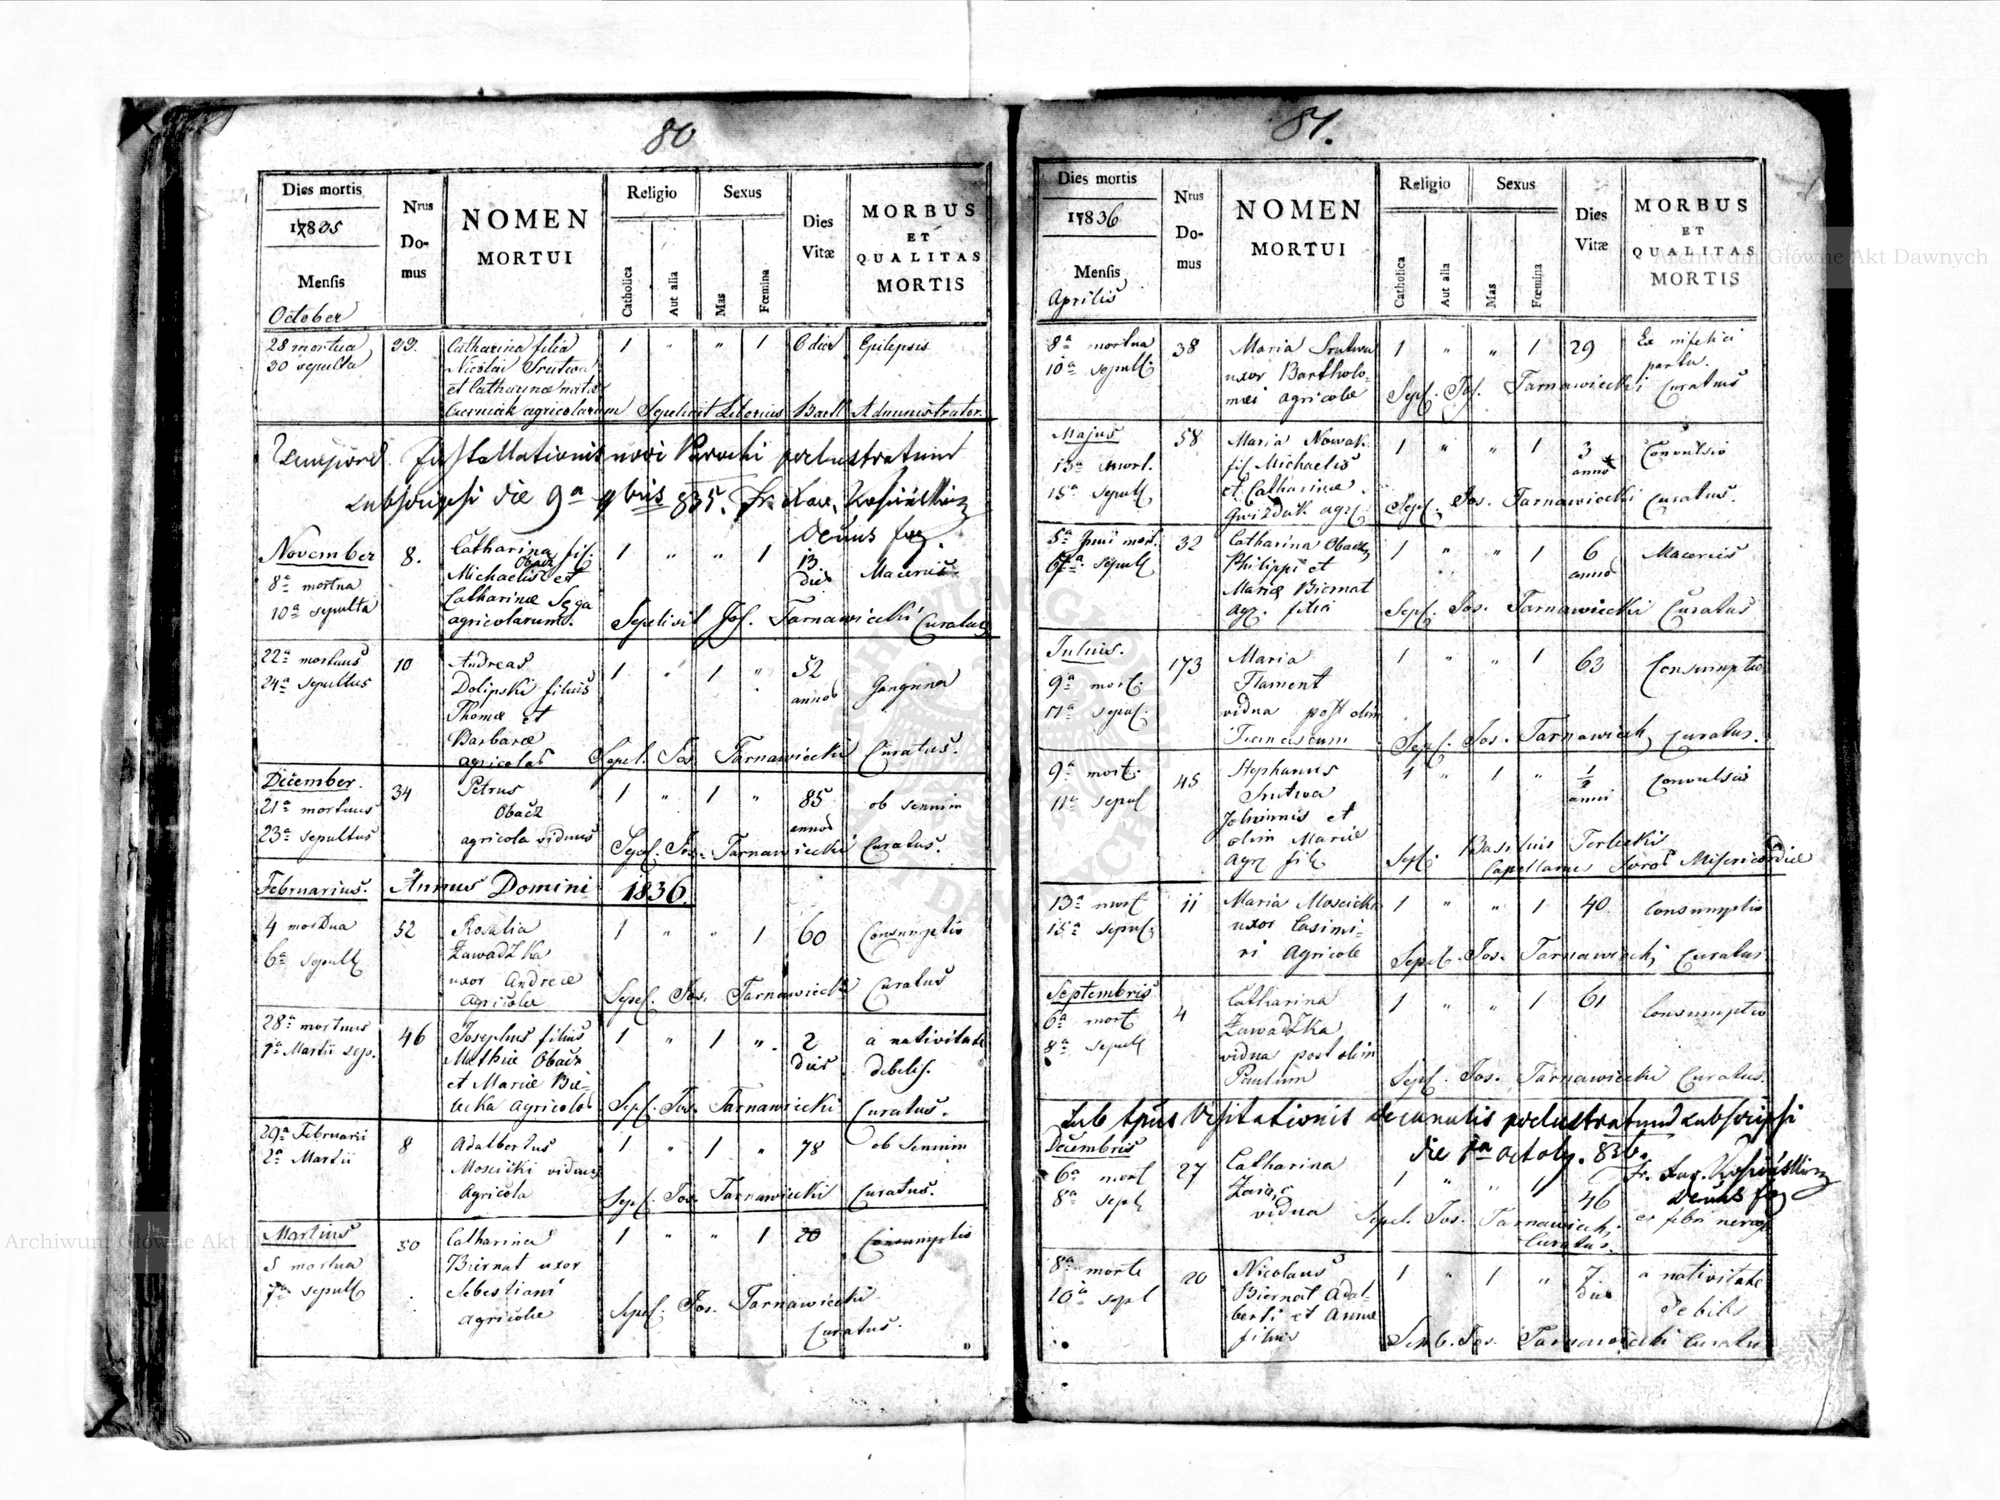 80
Dies mortis
17805
Mensis
October
Nrus
Do-
mus
NOMEN
MORTUI
Religio
Catholica
Aut alia
Sexus
Mas
Fœmina
Dies
Vitæ
MORBUS
ET
QUALITAS
MORTIS
28 mortua 33. Catharina filia 1 " " 1 6 dies Epilepsis
30 sepulta Nicolai Srutwa
et Catharinæ natæ
agricolarum Sepelivit Liborius Bartl Administrator.
Installationis novi Parochi perlustratum
subscripsi die 9a 9bris 835.
November 8. Catharina fil. 1 " " 1 13
Obacz
8a mortua Michaelis et dies Maceries
10a sepulta Catharinæ Sęga
agricolarum. Sepelivit Jos. Tarnawiecki Curatus
22a mortuus 10 Andreas 1 " 1 " 52
24a sepultus Dolipski filius annos Gangrena
Thomæ et
Barbaræ
agricolas Sepel. Jos. Tarnawiecki Curatus.
December. 34 Petrus 1 " 1 " 85 ob senium
21a mortuus Obacz annos
23a sepultus agricola viduus Sepel. Jos. Tarnawiecki Curatus.
Februarius. Annus Domini 1836.
4 mortua 52 Rosalia 1 " " 1 60 Consumptio
6a sepult Zawadzka
uxor Andreæ
Agricolæ Sepel. Jos. Tarnawiecki Curatus
28a mortuus 46 Josephus filius 1 " 1 " 2 a nativitate
1a Martii sep. Mathiæ Obacz dies debilis.
et Mariæ Bie-
Agricolas Sepel. Jos. Tarnawiecki Curatus.
29a Februarii 8 Adalbertus 1 " 1 " 78 ob senium
2a Martii Moscicki viduus
Agricola Sepel. Jos. Tarnawiecki Curatus.
Martius 50 Catharina 1 " " 1 20 Consumptio
5 mortua Biernat uxor
7a sepult Sebestiani
agricolæ Sepel. Jos. Tarnawiecki
Curatus.
81.
Dies mortis
17836
Mensis
Aprilis
Nrus
Do-
mus
NOMEN
MORTUI
Religio
Catholica
Aut alia
Sexus
Mas
Fœmina
Dies
Vitæ
MORBUS
ET
QUALITAS
MORTIS
8a mortua 38 Maria Srutwa 1 " " 1 29 Ex infelici
10a sepult uxor Bartholo- partu.
mei agricolæ Sepel. Jos. Tarnawiecki Curatus
Majus 58 Maria Nowak 1 " " 1 3 Convulsio
13a mort. fil Michaelis annos
15a sepult et Catharinæ
Gwizdak agr. Sepel. Jos. Tarnawiecki Curatus.
5a Junii mort. 32 Catharina Obacz 1 " " 1 6 Maceries
6a sepult Philippi et annos
Mariæ Biernat
agr. filia Sepel. Jos. Tarnawiecki Curatus
Julius. 173 Maria 1 " " 1 63 Consumptio
9a mort. Flament
11a sepul. vidua post olim
Franciscum Sepel. Jos. Tarnawiecki Curatus.
9a mort. 45 Stephanus 1 " 1 " 1/2 Convulsio
11a sepul Srutwa anni
Johannis et
olim Mariæ
Agr fil. Sepel. Basilius Terlecki
Capellanus Soror Misericordiæ
13a mort 11 Maria Moscicka 1 " " 1 40 Consumptio
15a sepul. uxor Casimi-
ri Agricolæ Sepel. Jos. Tarnawiecki Curatus
Septembris 4 Catharina 1 " " 1 61 Consumptio
6a mort Zawadzka
8a sepult vidua post olim
Paulum Sepel. Jos. Tarnawiecki Curatus.
Sub tpus Visitationis decanalis perlustratum subscripsi
die 1a octob. 836.
Decembris
6a mort 27 Catharina 1 " " 1 46
8a sepl vidua Sepel. Jos. Tarnawiecki
Curatus.
8a morte 20 Nicolaus 1 " 1 " 7 a nativitate
10a sepl Biernat Adal- dies debilis
berti et Annæ
filius Sepel. Jos. Tarnawiecki Curatus
Archiwum Główne Akt Dawnych
Archiwum Główne Akt Dawnych
ARCHIWUM GŁÓWNE AKT DAWNYCH